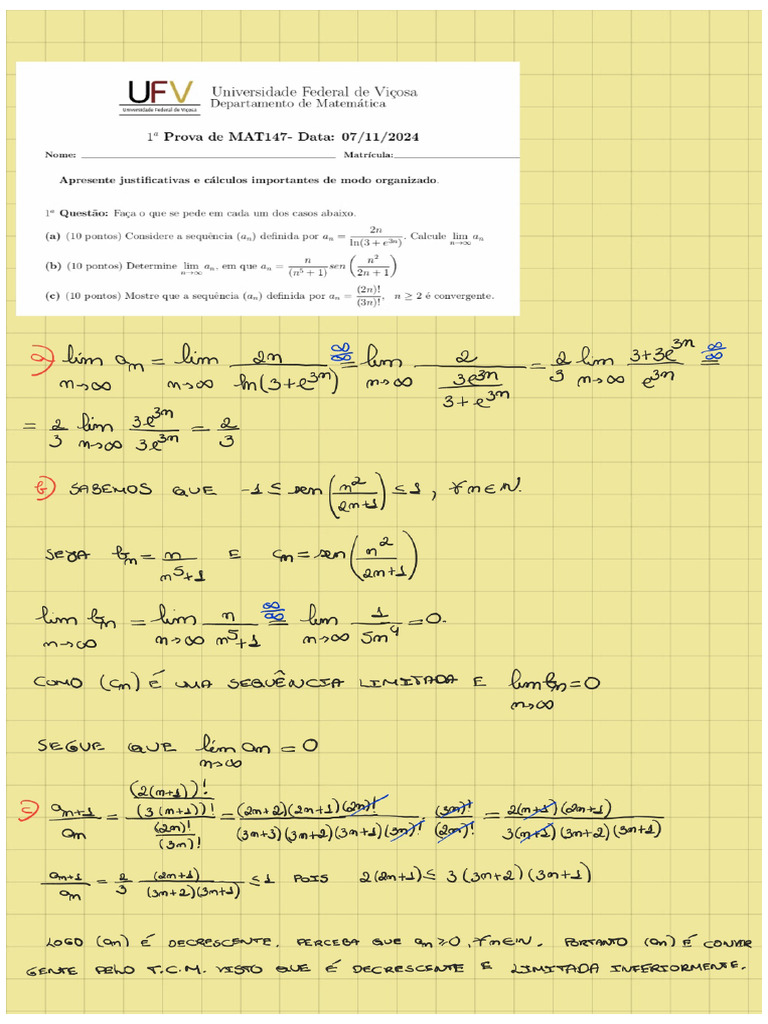 UFV
Universidade Federal de Viçosa
Universidade Federal de Viçosa
Departamento de Matemática
1ª Prova de MAT147- Data: 07/11/2024
Nome: Matrícula:
Apresente justificativas e cálculos importantes de modo organizado.
1ª Questão: Faça o que se pede em cada um dos casos abaixo.
(a) (10 pontos) Considere a sequência (a_n) definida por a_n = 2n / ln(3 + e^{3n}). Calcule lim_{n→∞} a_n
(b) (10 pontos) Determine lim_{n→∞} a_n, em que a_n = n/(n^5 + 1) sen(n^2/(2n + 1))
(c) (10 pontos) Mostre que a sequência (a_n) definida por a_n = (2n)!/(3n)!, n ≥ 2 é convergente.
a) lim_{n→∞} a_n = lim_{n→∞} 2n / ln(3+e^{3n}) =^{∞/∞} lim_{n→∞} 2 / (3e^{3n}/(3+e^{3n})) = 2/3 lim_{n→∞} (3+3e^{3n})/e^{3n} =^{∞/∞}
= 2/3 lim_{n→∞} 3e^{3n}/3e^{3n} = 2/3
b) SABEMOS QUE -1 ≤ sen(n^2/(2n+1)) ≤ 1, ∀n∈N.
SEJA b_n = n/(n^5+1) E c_n = sen(n^2/(2n+1))
lim_{n→∞} b_n = lim_{n→∞} n/(n^5+1) =^{∞/∞} lim_{n→∞} 1/5n^4 = 0.
COMO (c_n) É UMA SEQUÊNCIA LIMITADA E lim_{n→∞} b_n = 0
SEGUE QUE lim_{n→∞} a_n = 0
c) a_{n+1}/a_n = ((2(n+1))!/(3(n+1))!) / ((2n)!/(3n)!) = (2n+2)(2n+1)(2n)!/(3n+3)(3n+2)(3n+1)(3n)! · (3n)!/(2n)! = 2(n+1)(2n+1)/3(n+1)(3n+2)(3n+1)
a_{n+1}/a_n = 2/3 (2n+1)/(3n+2)(3n+1) ≤ 1 POIS 2(2n+1) ≤ 3(3n+2)(3n+1)
LOGO (a_n) É DECRESCENTE. PERCEBA QUE a_n ≥ 0, ∀n∈IN. PORTANTO (a_n) É CONVER
GENTE PELO T.C.M. VISTO QUE É DECRESCENTE E LIMITADA INFERIORMENTE.